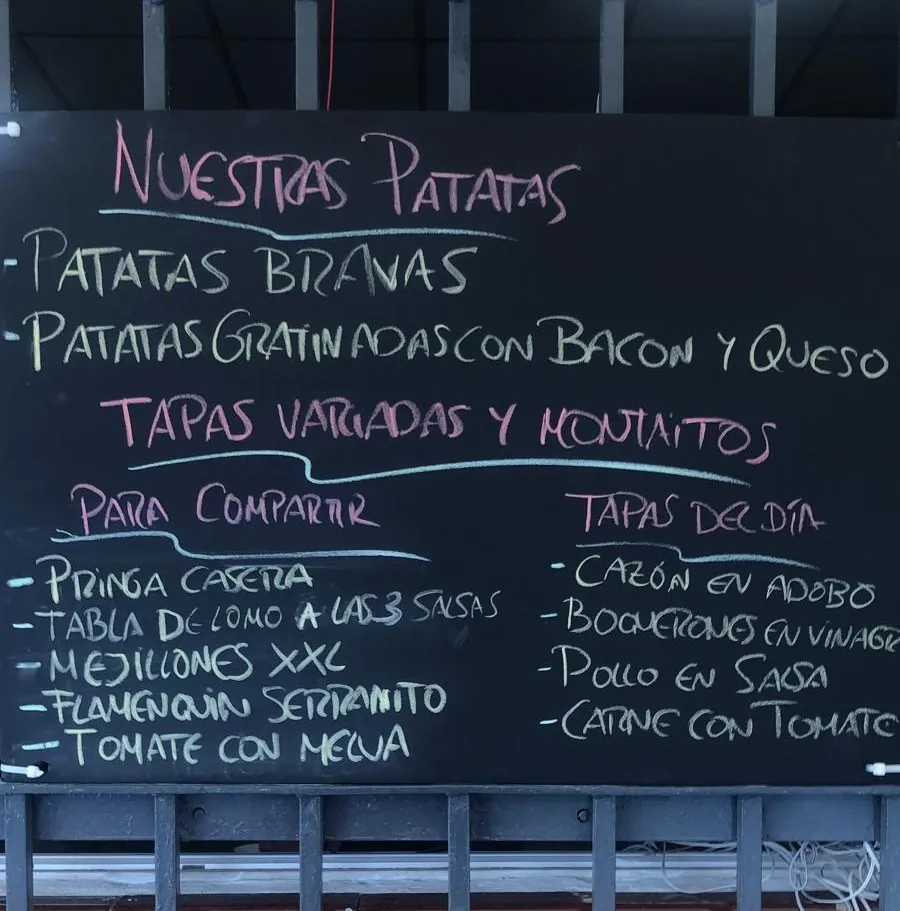 NUESTRAS PATATAS
- PATATAS BRAVAS
- PATATAS GRATINADAS CON BACON Y QUESO
TAPAS VARIADAS Y MONTAITOS
PARA COMPARTIR
- PRINGA CASERA
- TABLA DE LOMO A LAS 3 SALSAS
- MEJILLONES XXL
- FLAMENQUIN SERRANITO
- TOMATE CON MELVA
TAPAS DEL DÍA
- CAZÓN EN ADOBO
- BOQUERONES EN VINAGR
- POLLO EN SALSA
- CARNE CON TOMATE